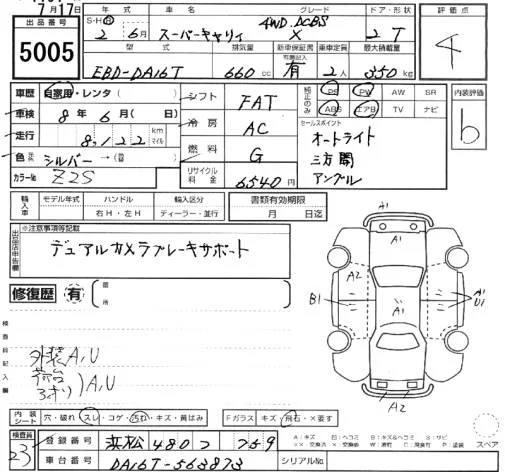 7月17日
出品番号 5005
年式 車名 グレード ドア・形状
S-H R 2年 6月 スーパーキャリィ 4WD.DCBS X 2 T
型式 排気量 新車保証書 乗車定員 最大積載量
EBD-DA16T 660cc 有 2人 350kg
評価点 4
車歴 自家用・レンタ( )
車検 8年 6月( 日)
走行 8,122 km マイル
色 シルバー→( )
カラーNo Z2S
シフト FAT
冷房 AC
燃料 G
リサイクル料金 6540円
純正のみ PS PW AW SR
ABS エアB TV ナビ
セールスポイント
オートライト
三方開
アングル
内装評価 b
輸入車 モデル年式 ハンドル 輸入区分
右H・左H ディーラー・並行
書類有効期限
月 日迄
出品店申告欄 ※注意事項等記載
デュアルカメラブレーキサポート
修復歴 有 ( 箇所 )
検査員記入欄
外装A,U
荷台
アオリ )A,U
A1
A1
A2
B1
A1
A1
U1
A2
内装シート 穴・破れ スレ・コゲ・汚れ・キズ・黄ばみ
Fガラス キズ・飛石・×要す
検査員 23
登録番号 浜松 480 つ 759
車台番号 DA16T-563873
シリアルNo.
A:キズ U:ヘコミ B:キズ&ヘコミ S:サビ
スペア